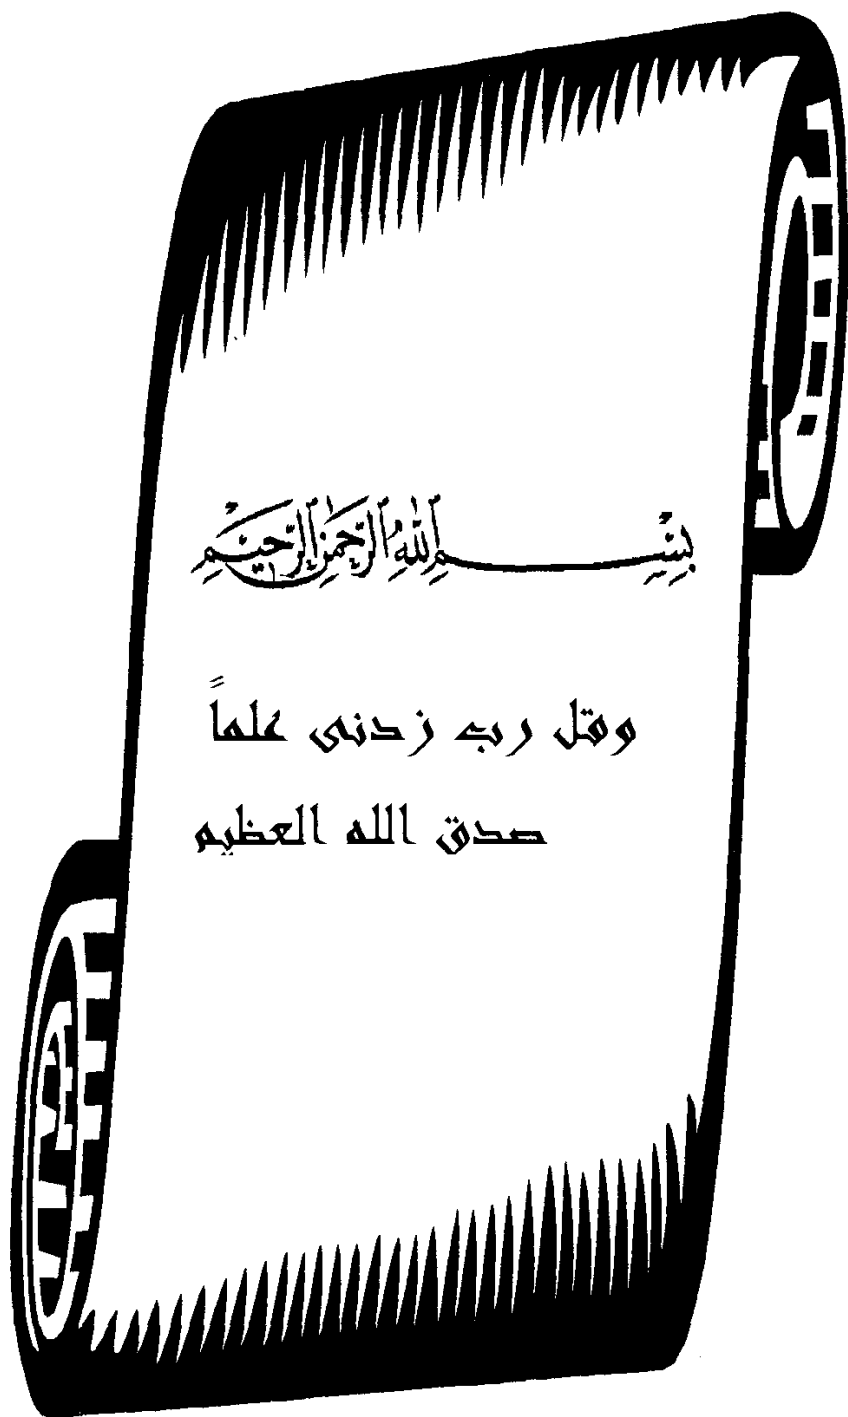 بِسْمِ اللهِ الرَّحْمَنِ الرَّحِيمِ
وقل رب زدنى علماً
صدق الله العظيم